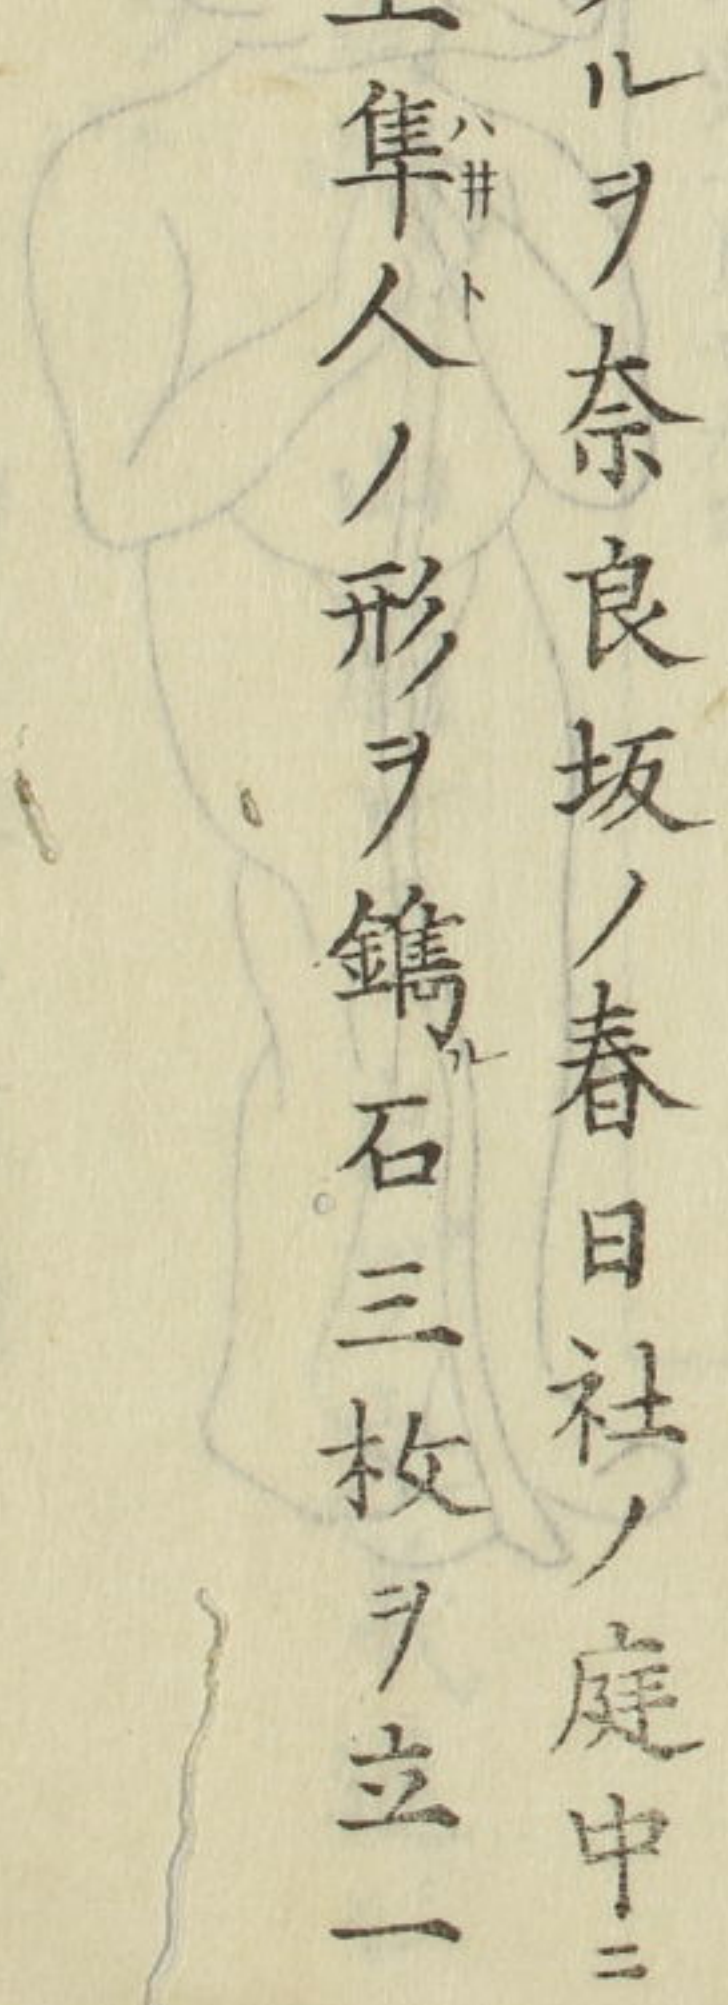 ルヲ奈良坂ノ春日社ノ庭中ニ
隼人ノ形ヲ鐫ル石三枚ヲ立一
ハヰト